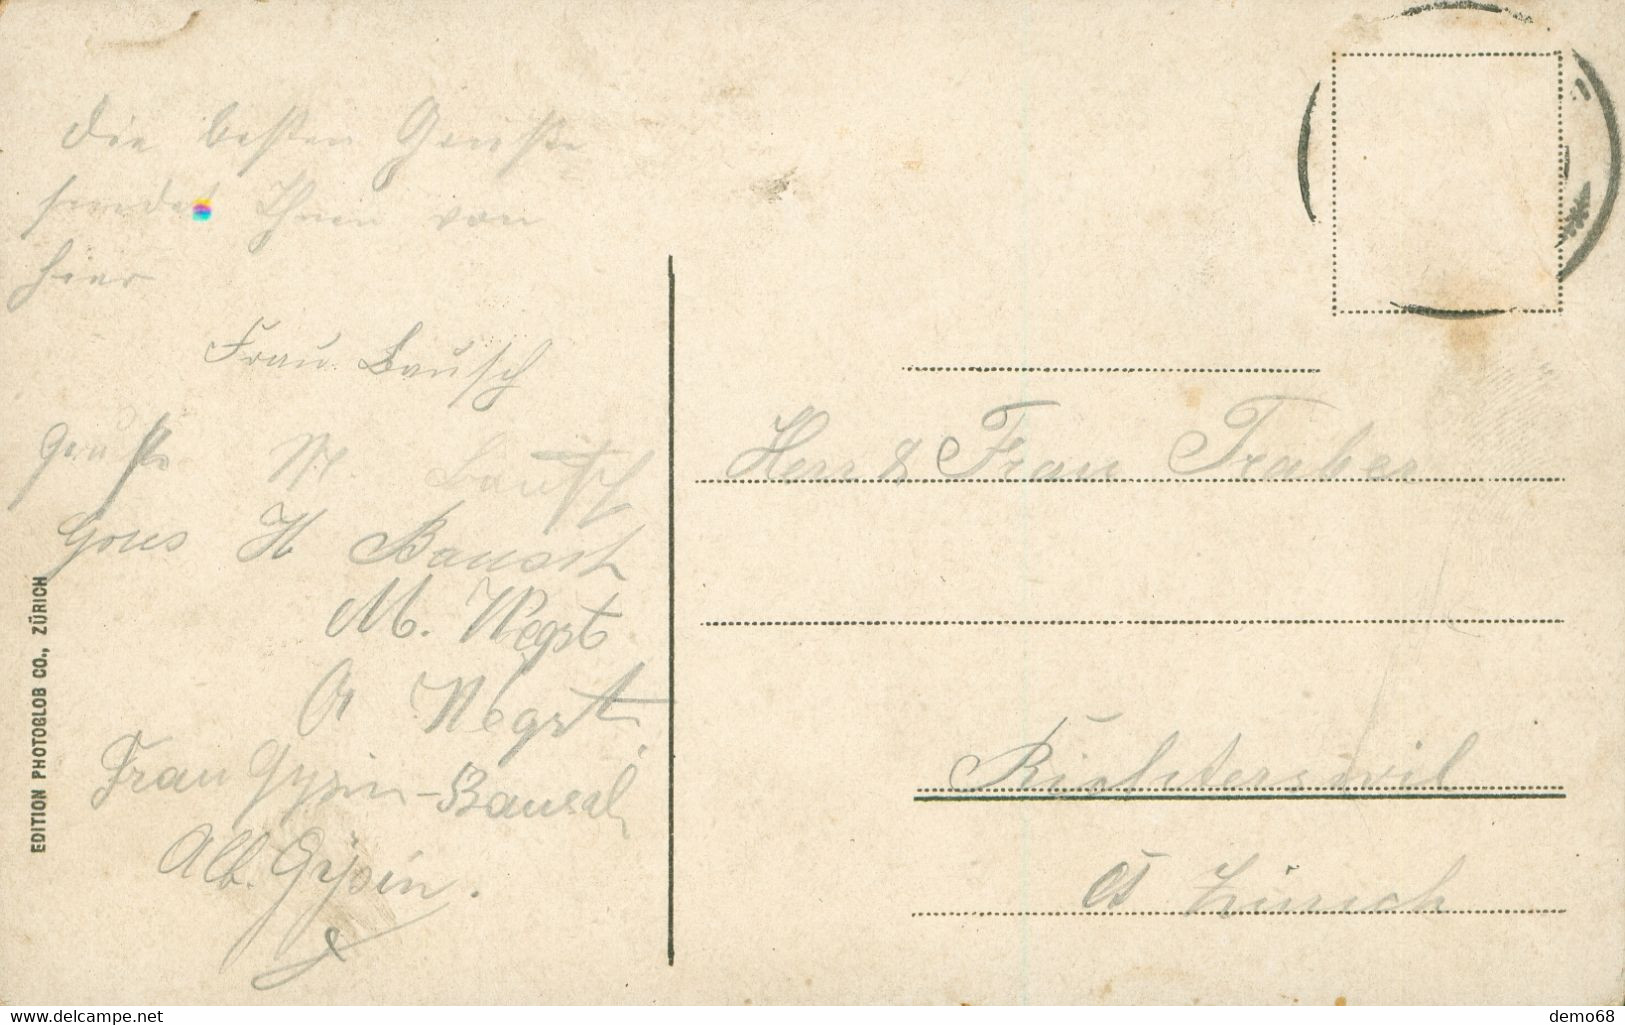 Die besten Grüsse
sendet Ihnen von
hier
Frau Bausch
Grüsse M. Bausch
Gruss H Bausch
M. Wegst
A Wegst
Frau Gysin-Bausch
Alb. Gysin.
EDITION PHOTOGLOB CO., ZÜRICH
Herr & Frau Traber
Richterswil
Ct Zürich
Delcampe.net
demo68